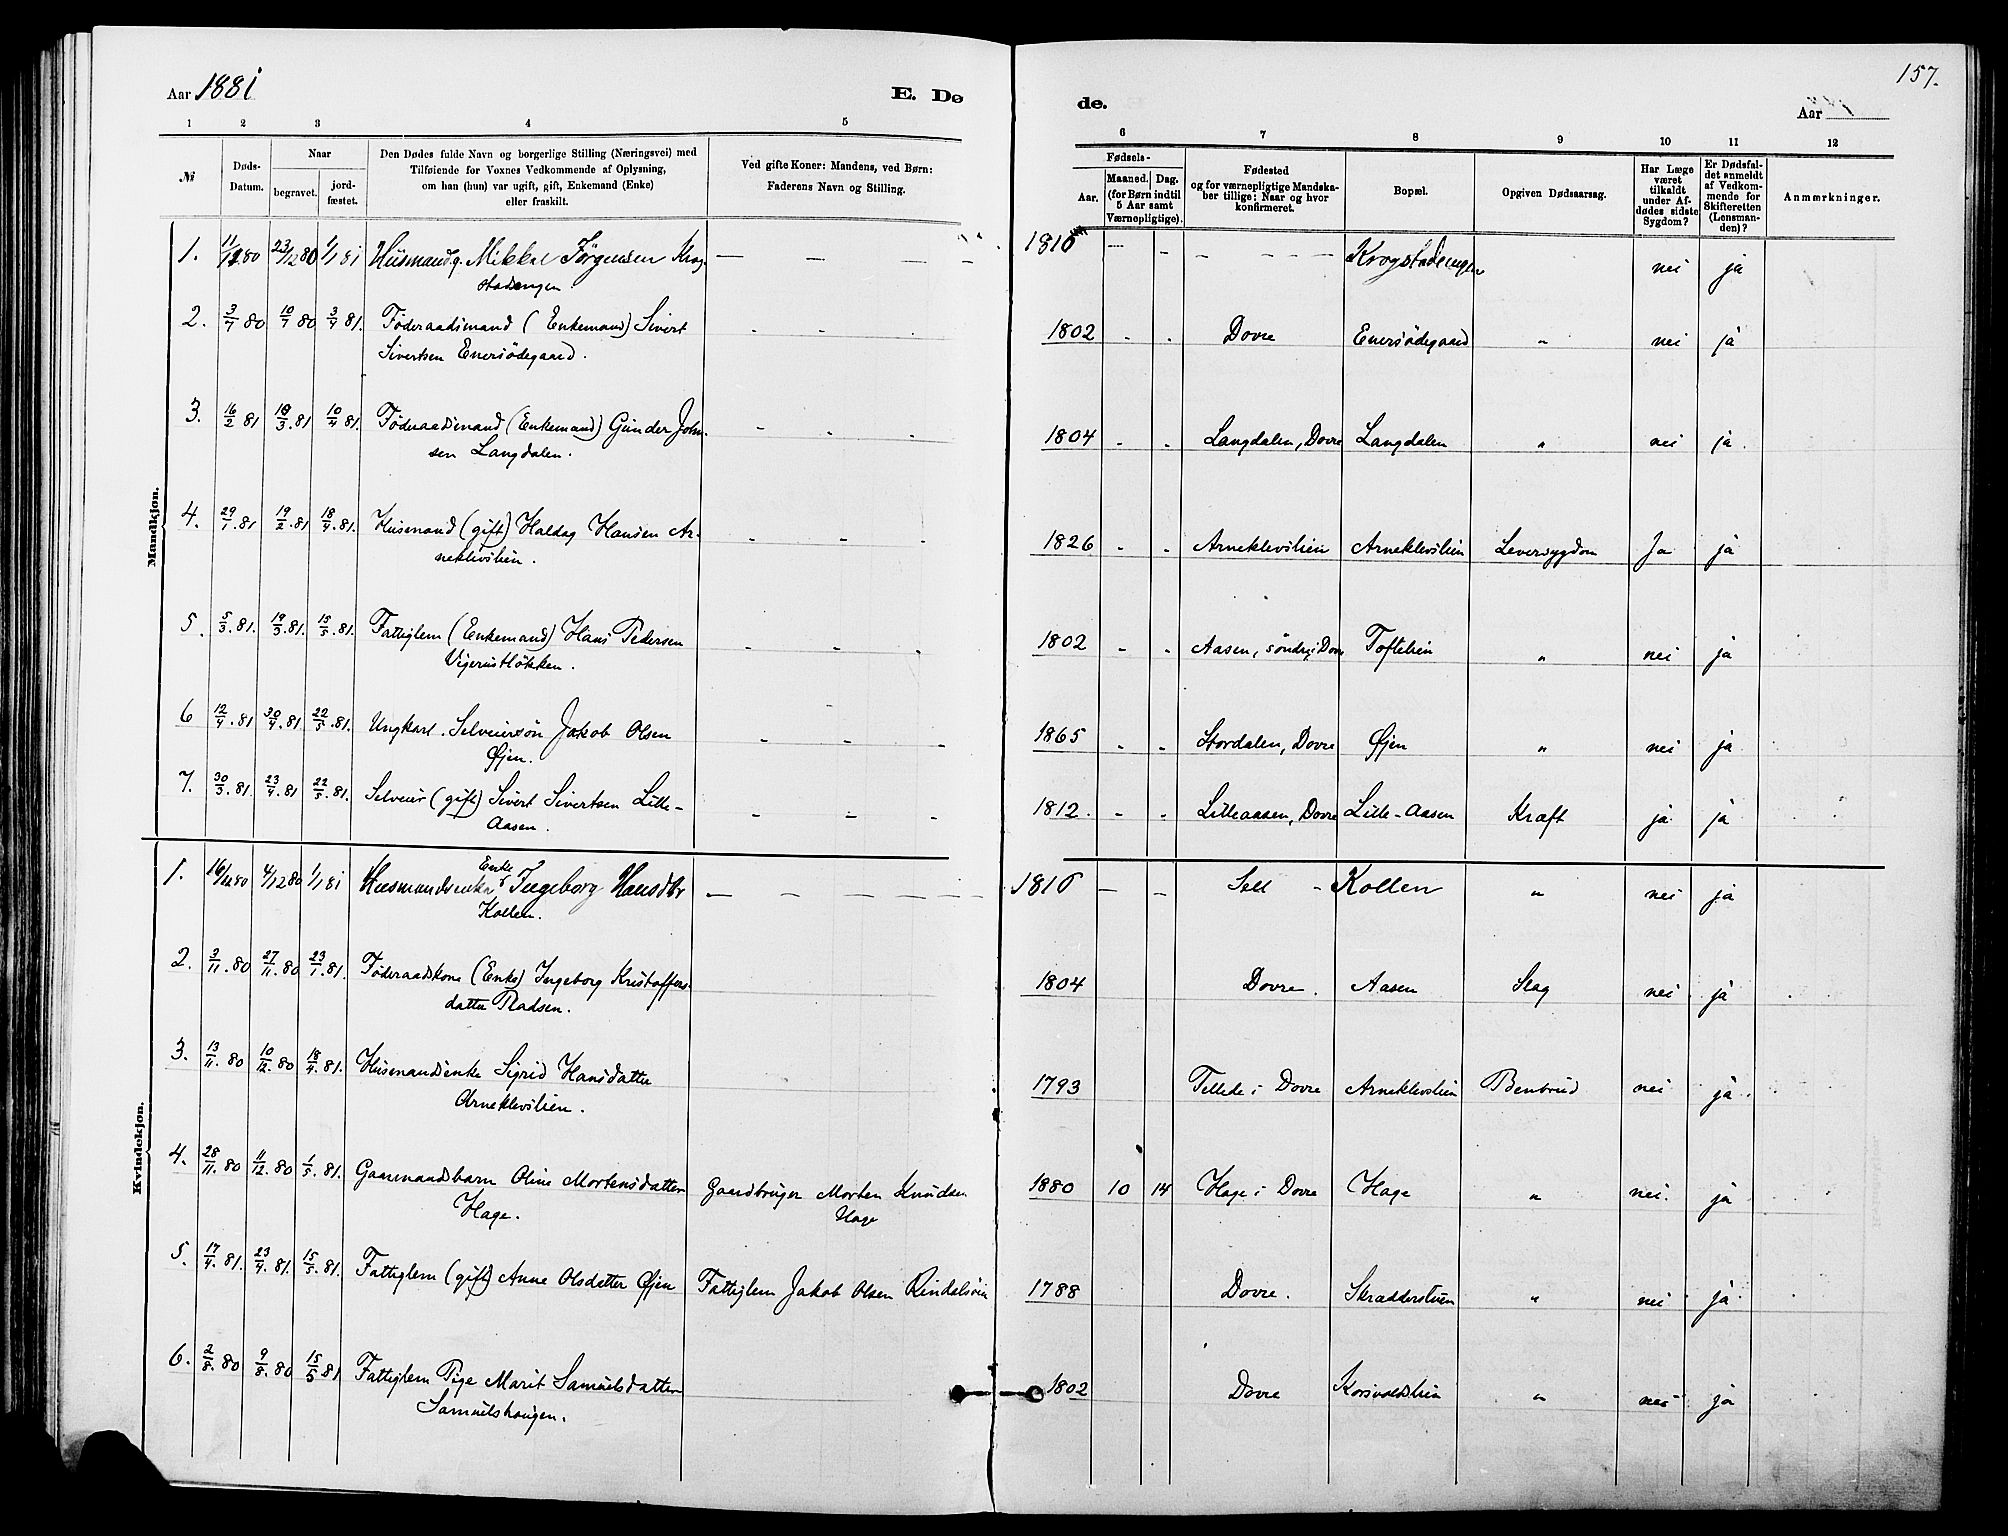 157.
Aar 1881
E. Dø
de.
Aar
1 2 3 4 5
6 7 8 9 10 11 12
№
Døds-
Datum.
Naar
begravet.
jord-
fæstet.
Den Dødes fulde Navn og borgerlige Stilling (Næringsvei) med
Tilføiende for Voxnes Vedkommende af Oplysning,
om han (hun) var ugift, gift, Enkemand (Enke)
eller fraskilt.
Ved gifte Koner: Mandens, ved Børn:
Faderens Navn og Stilling.
Fødsels-
Aar.
Maaned. Dag.
(for Børn indtil
5 Aar samt
Værnepligtige).
Fødested
og for værnepligtige Mandska-
ber tillige: Naar og hvor
konfirmeret.
Bopæl.
Opgiven Dødsaarsag.
Har Læge
været
tilkaldt
under Af-
dødes sidste
Sygdom?
Er Dødsfal-
det anmeldt
af Vedkom-
mende for
Skifteretten
(Lensman-
den)?
Anmærkninger.
Mandkjøn.
1. 11/12 80 23/12 80 1/1 81 Husmand g. Mikkel Jørgensen Krog- — — — — 1816 — - - - - - Krogstadengen nei ja
stadengen
2. 3/7 80 10/7 80 3/4 81. Føderaadsmand (Enkemand) Sivert - - - 1802 - - Dovre Enersödegaard " nei ja
Sivertsen Enersödegaard.
3. 16/2 81 18/3.81 10/4 81. Føderaadsmand (Enkemand) Gunder John- - - - 1804 - - Langdalen, Dovre Langdalen " nei ja.
sen Langdalen.
4. 29/1.81 19/2.81 18/4.81. Husmand (gift) Haldag Hansen Ar- - - - 1826 - - Arneklevslien Arneklevslien Leversygdom Ja ja
neklevslien.
5. 5/3.81. 19/3.81. 15/5.81. Fattiglem (Enkemand) Hans Pedersen - - - 1802 - - Aasen, söndre i Dovre Toftelien " nei ja
Vigerustlökken.
6 12/4.81 30/4.81. 22/5.81. Ungkarl. Selveiersön Jakob Olsen - - - 1865 - - Stordalen, Dovre Øjen " nei ja
Øjen.
7. 30/3.81. 23/4.81 22/5.81. Selveier (gift) Sivert Sivertsen Lille- - - - 1812. - - Lilleaasen, Dovre Lille-Aasen Kræft ja ja
Aasen.
Kvindekjøn.
Enke
1. 4/12 80 1/1 81 Husmandsenke Ingeborg Hansdtr — — — — — 1816 — — Sell - Kollen " nei ja
Kollen.
2. 3/11.80 27/11.80 23/1.81. Føderaadskone (Enke) Ingeborg Kristoffers- 1804 Dovre. Aasen Slag nei ja
datter Pladsen.
3. 13/11.80 10/12.80 18/4.81. Husmandsenke Sigrid Hansdatter 1793 Tellede i Dovre Arneklevslien Benbrud nei ja.
Arneklevslien.
4. 28/11.80 11/12.80 1/5.81. Gaarmandsbarn Oline Mortensdatter Gaardbruger Morten Knudsen 1880 10 14 Hage i Dovre Hage " nei. ja
Hage. Hage
5. 17/4.81. 23/4.81. 15/5.81. Fattiglem (gift) Anne Olsdatter Øjen Fattiglem Jakob Olsen Rindalsöien 1788 Dovre. Skrædderstuen " nei ja.
6. 2/8.80 9/8.80 15/5 81 Fattiglem Pige Marit Samuelsdatter 1802 Dovre Korsvoldslien " nei ja
Samuelshaugen.